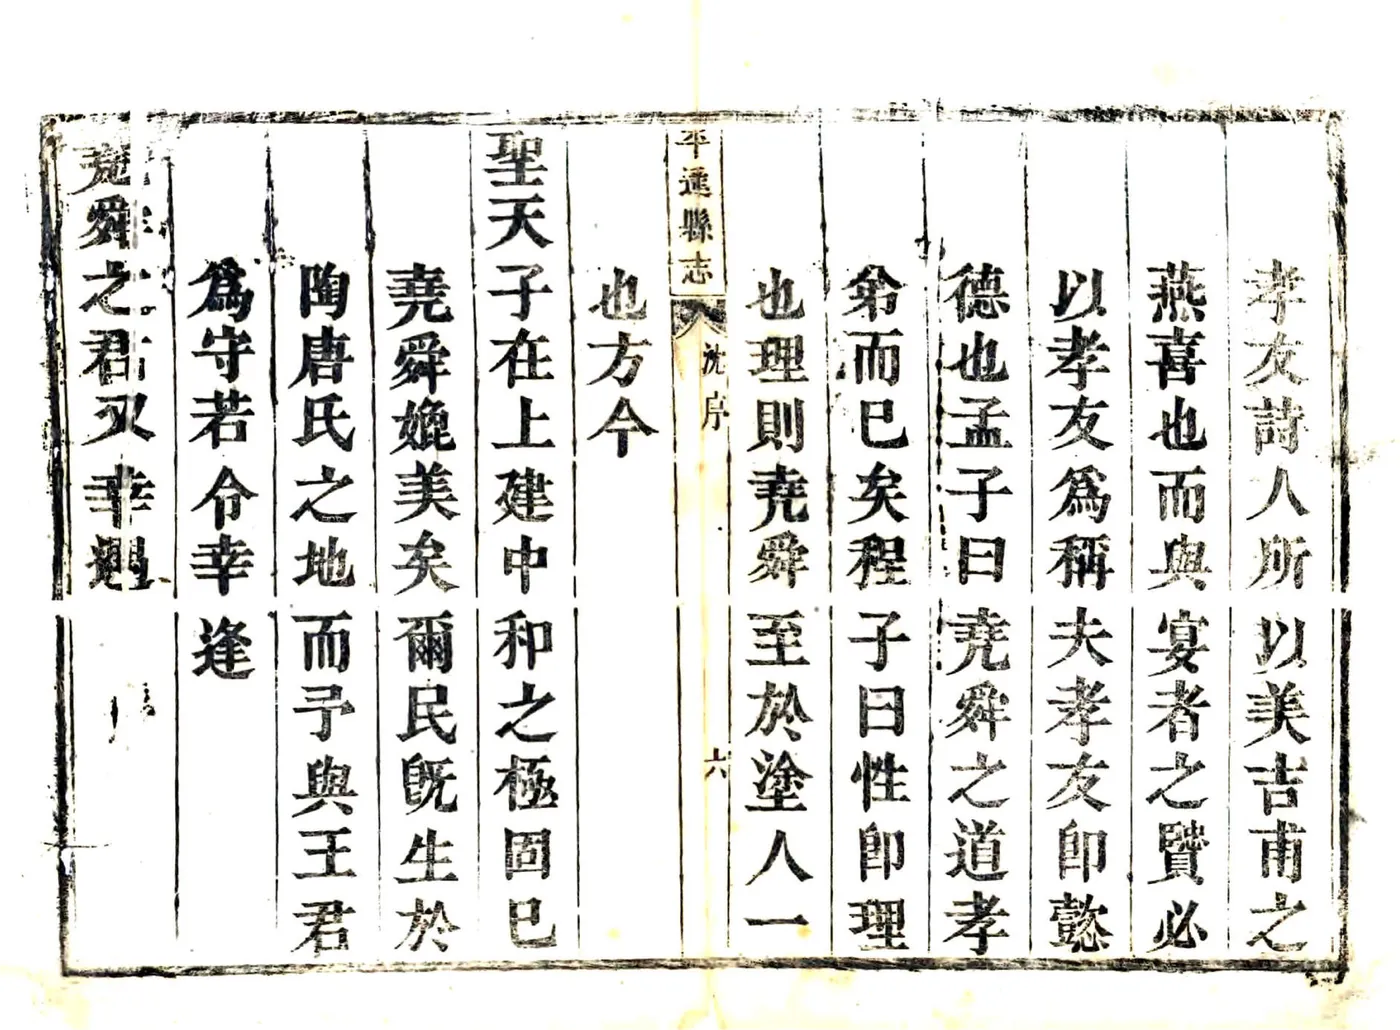 孝友詩人所以美吉甫之
燕喜也而與宴者之賢必
以孝友爲稱夫孝友卽懿
德也孟子曰堯舜之道孝
弟而已矣程子曰性卽理
也理則堯舜至於塗人一
平遙縣志
沈序
六
也方今
聖天子在上建中和之極固已
堯舜媲美矣爾民旣生於
陶唐氏之地而予與王君
爲守若令幸逢
堯舜之君又幸遇